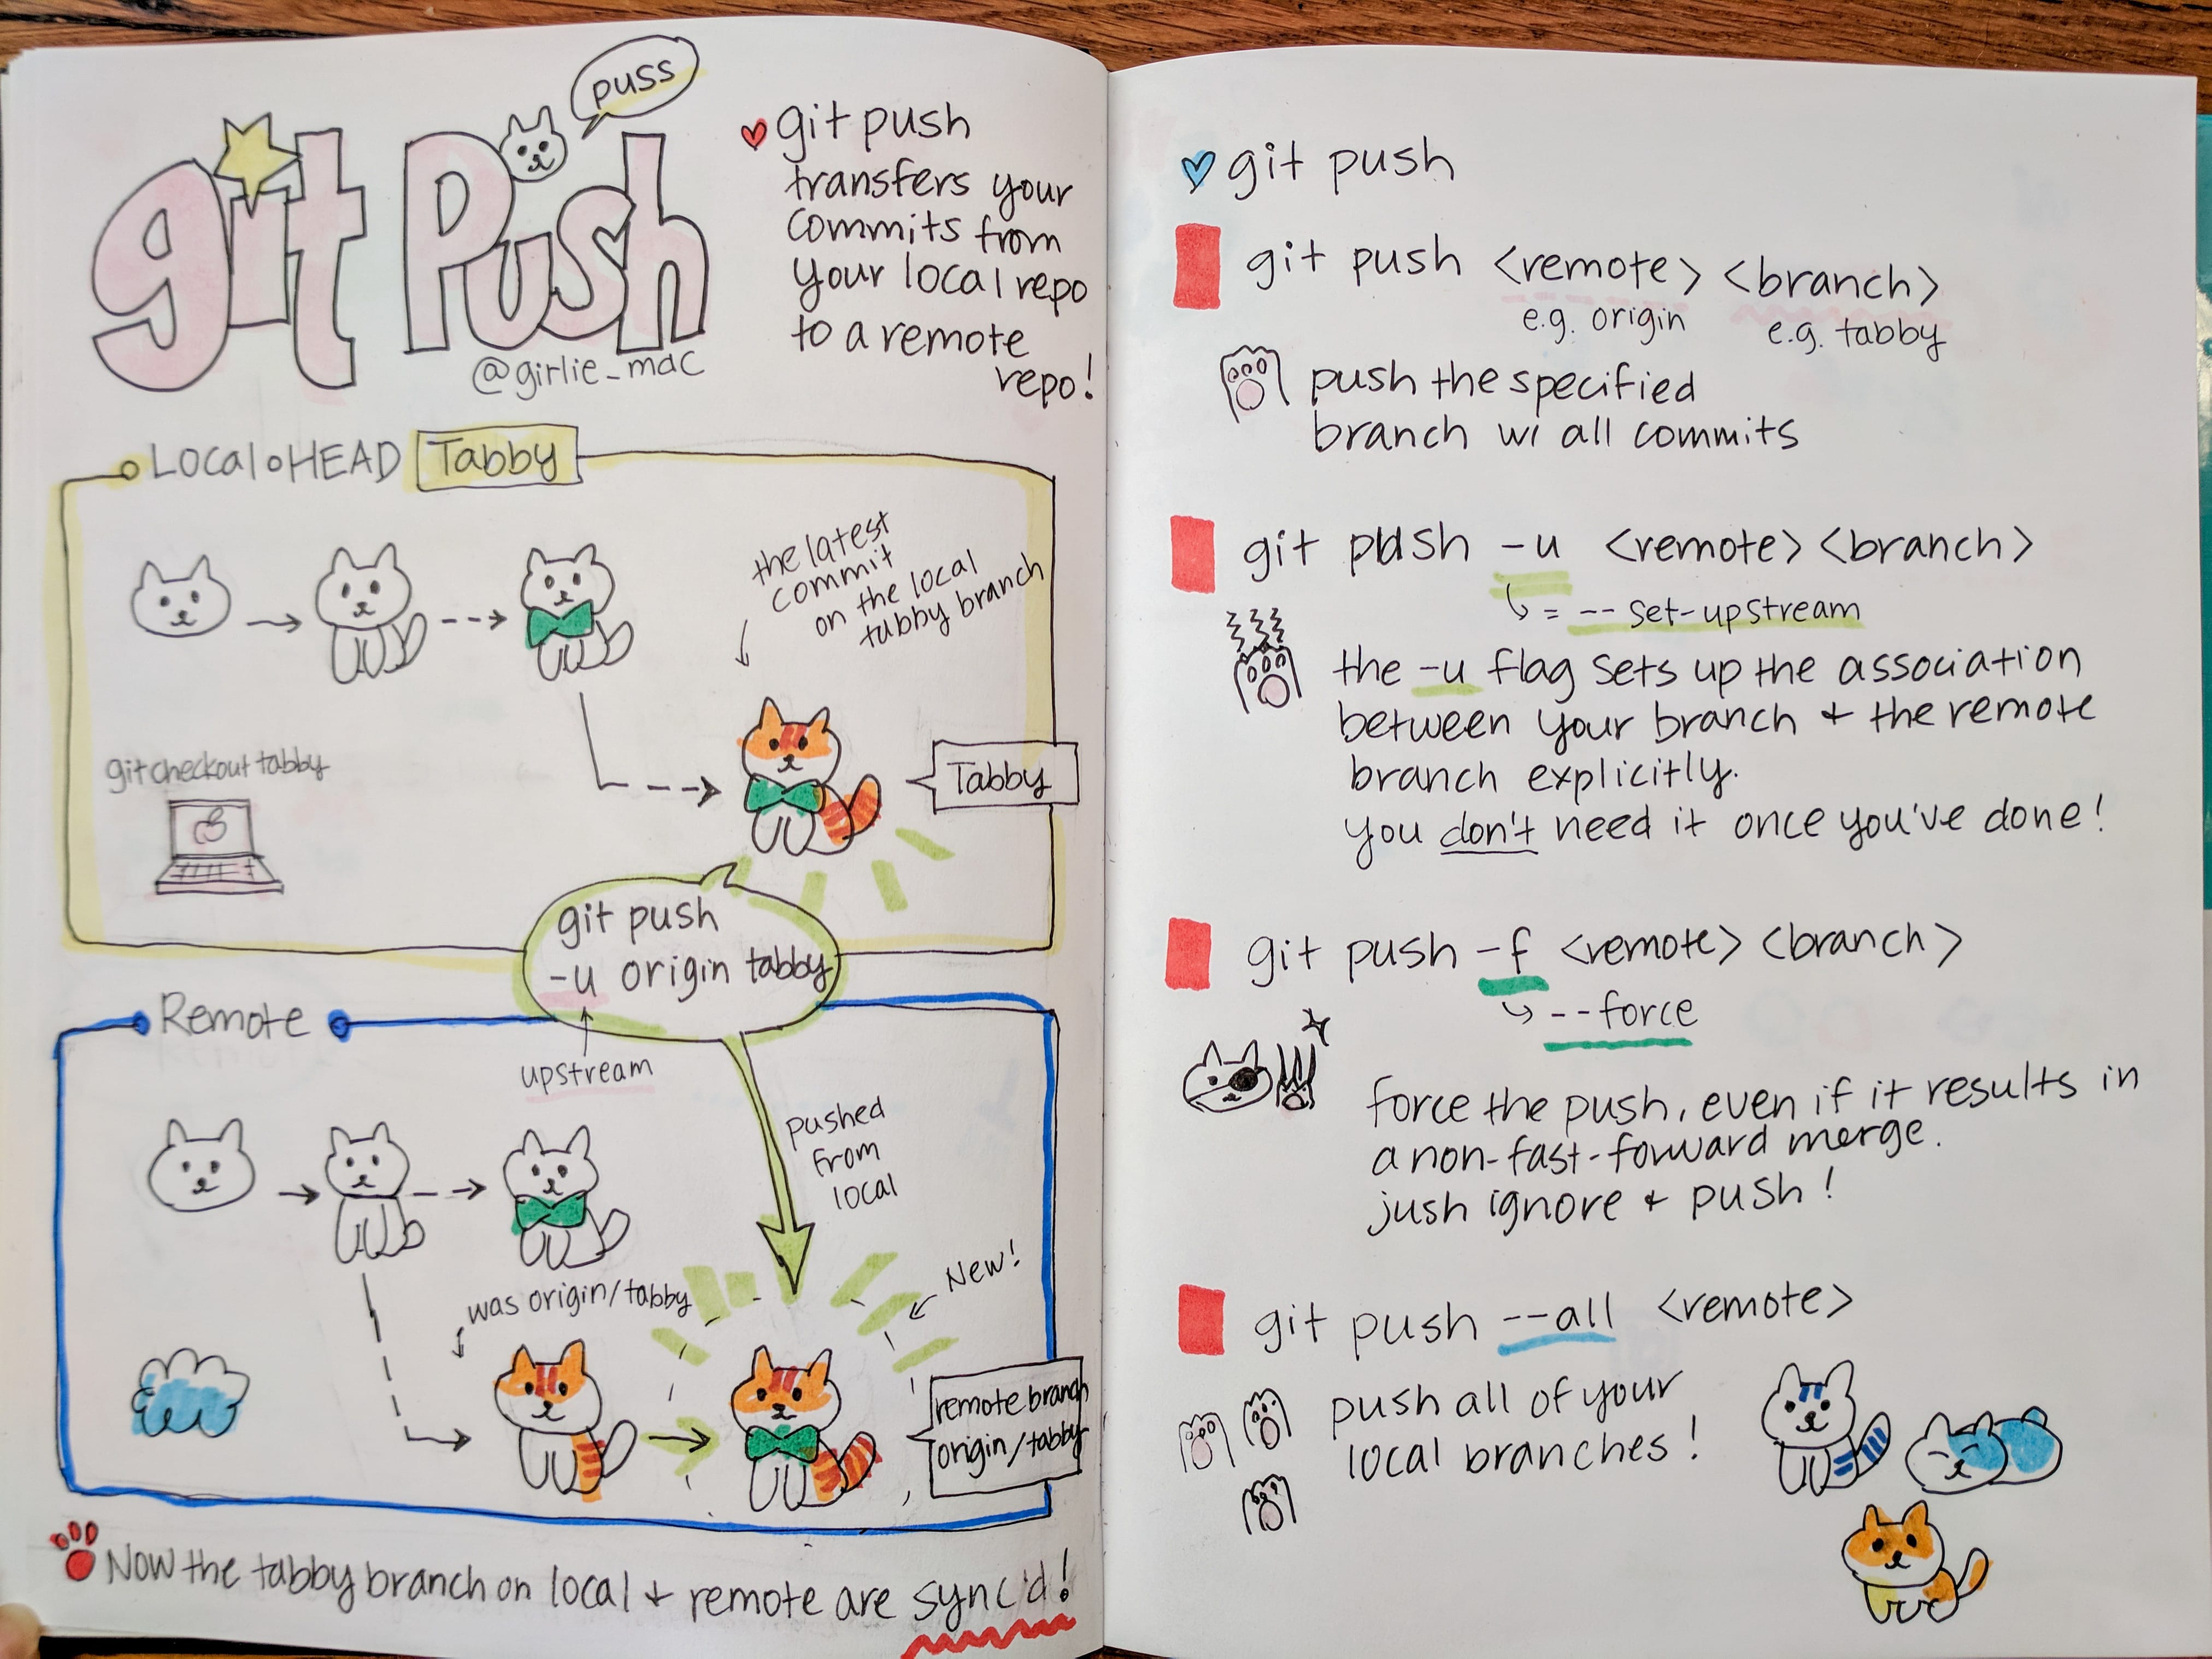 puss
git Push
@girlie_mac
git push
transfers your
commits from
your local repo
to a remote
repo!
Local HEAD Tabby
the latest
commit
on the local
tabby branch
git checkout tabby
Tabby
git push
-u origin tabby
Remote
upstream
pushed
from
local
was origin/tabby
New!
remote branch
origin/tabby
Now the tabby branch on local + remote are sync'd!
git push
git push <remote> <branch>
e.g. origin
e.g. tabby
push the specified
branch w/ all commits
git push -u <remote> <branch>
= --set-upstream
the -u flag sets up the association
between your branch + the remote
branch explicitly.
you don't need it once you've done!
git push -f <remote> <branch>
--force
force the push, even if it results in
a non-fast-forward merge.
jush ignore + push!
git push --all <remote>
push all of your
local branches!